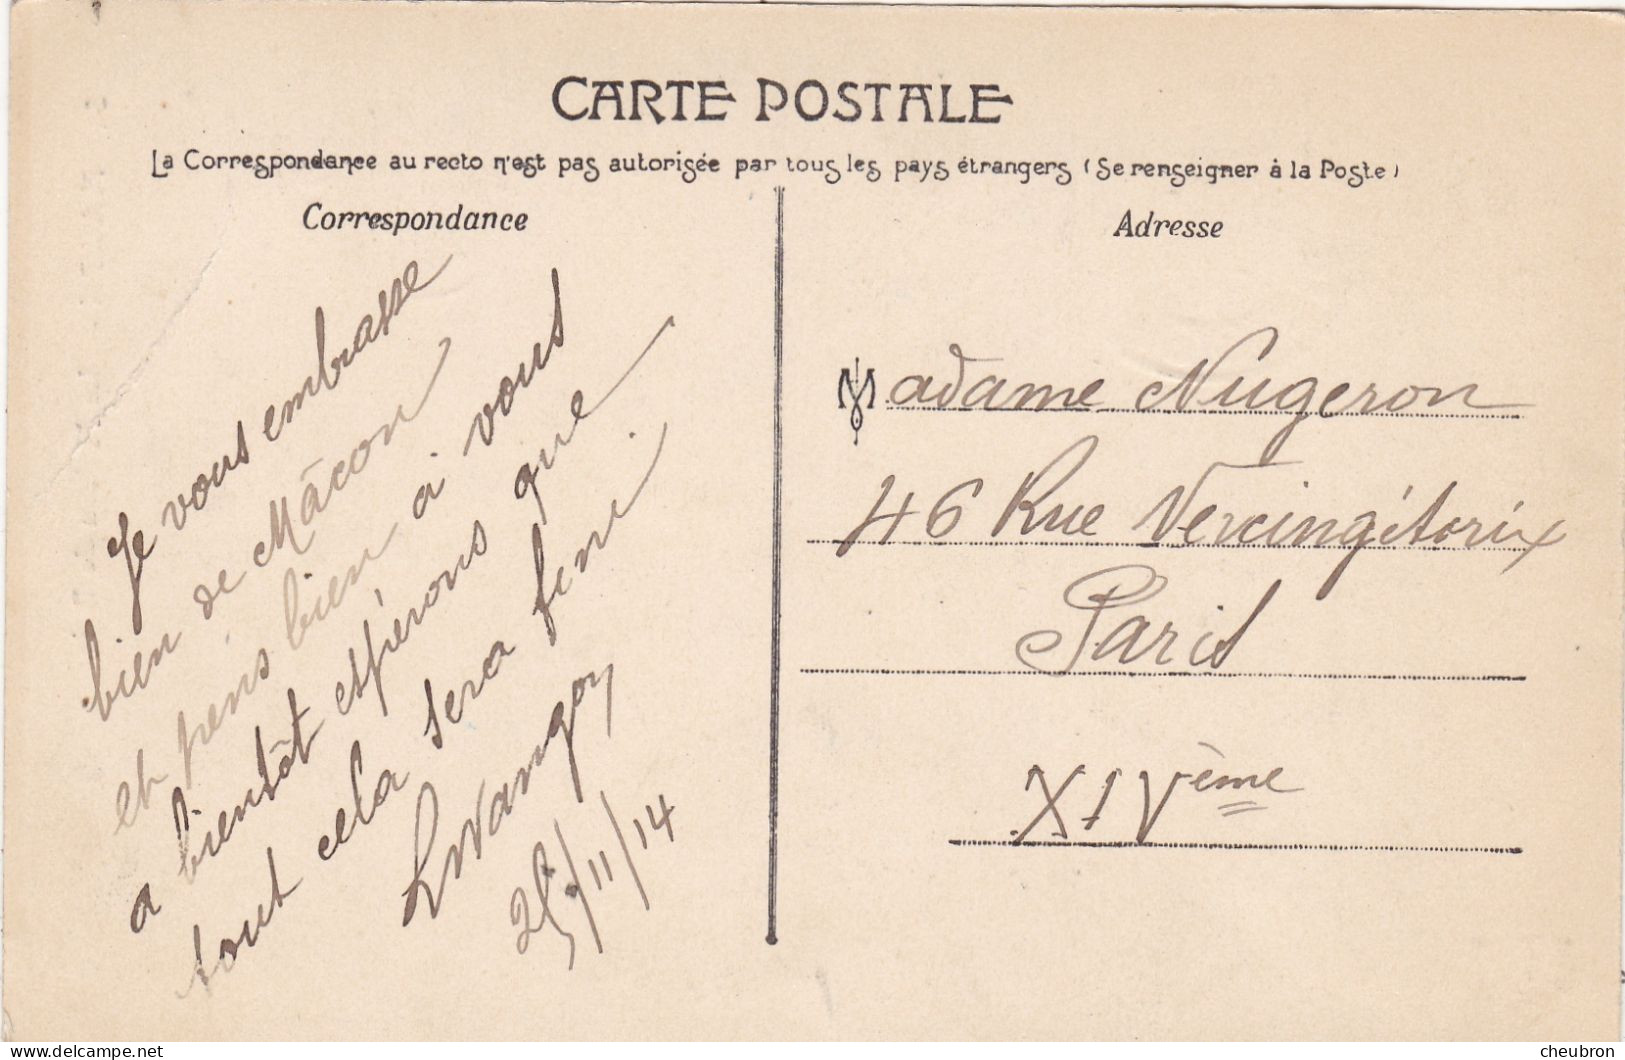 CARTE POSTALE
La Correspondance au recto n'est pas autorisée par tous les pays étrangers (Se renseigner à la Poste)
Correspondance
Je vous embrasse
bien de Mâcon
et pens bien à vous
a bientôt espérons que
tout cela sera fini.
/11/14
Adresse
Madame Nugeron
46 Rue Vercingétorix
Paris
XIVème
cheubron